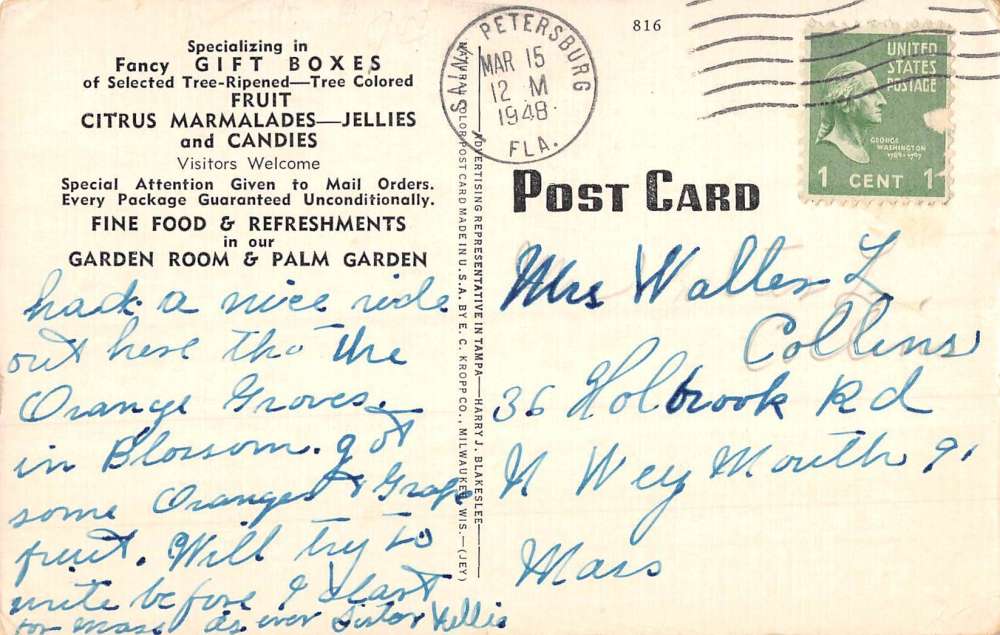 Specializing in
Fancy GIFT BOXES
of Selected Tree-Ripened—Tree Colored
FRUIT
CITRUS MARMALADES—JELLIES
and CANDIES
Visitors Welcome
Special Attention Given to Mail Orders.
Every Package Guaranteed Unconditionally.
FINE FOOD & REFRESHMENTS
in our
GARDEN ROOM & PALM GARDEN
had a nice ride
out here tho the
Orange Groves.
in Blossom. got
some Oranges & Grape
fruit. Will try to
write before I start
for Mass as ever Sister Nellie
NATURAL COLOR POST CARD MADE IN U.S.A. BY E. C. KROPP CO., MILWAUKEE, WIS.—(JEY)
ADVERTISING REPRESENTATIVE IN TAMPA—HARRY J. BLAKESLEE
SAINT PETERSBURG
MAR 15
12 M
1948
FLA.
816
UNITED
STATES
POSTAGE
GEORGE
WASHINGTON
1789-1797
1 CENT 1
POST CARD
Mrs Walter L
Collins
36 Holbrook Rd
N Wey Mouth 91
Mass